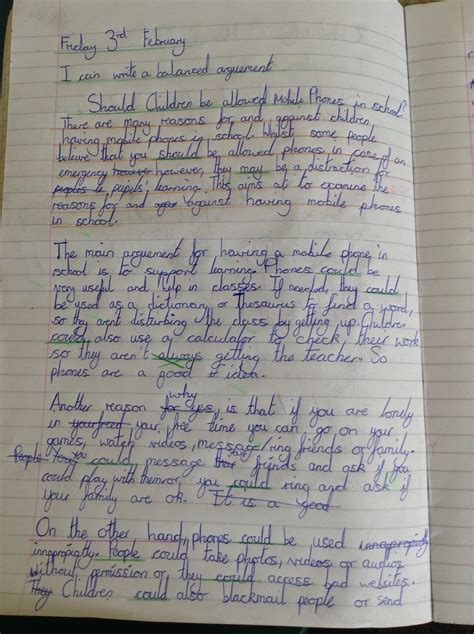 Friday 3rd February
I can write a balanced arguement
Should Children be allowed Mobile Phones in school?
There are many reasons for and against children
having mobile phones in school. Whilst some people
believe that you should be allowed phones in case of an
emergency however however, they may be a distraction for
peoples le pupils' learning. This aims at to examine the
reasons for and against having mobile phones
in school.
The main arguement for having a mobile phone in
school is to support learning. Phones could be
very useful and help in classes. If needed, they could
be used as a dictionary or Thesaurus to find a word,
so they arent disturbing the class by getting up. Children
could also use a calculator to check their work
so they aren't always getting the teacher. So
phones are a good idea.
why
Another reason for yes, is that if you are lonely
in your free time you can go on your
games, watch videos, message/ring friends or family.
People You could message friends and ask if you
could play with them or, you could ring and ask if
your family are ok. It is a good
On the other hand, phones could be used
innapropietly. People could take photos, videos or audios
without permission or they could access bad websites.
They Children could also blackmail people or send